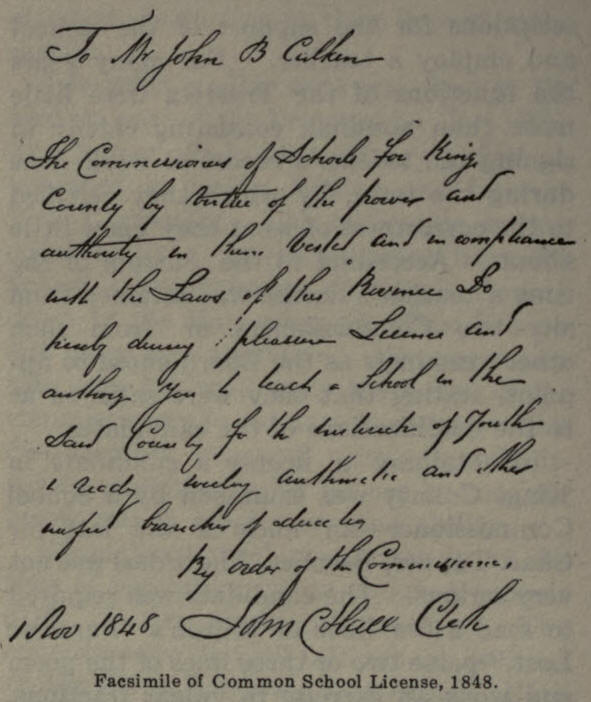 To Mr John B Calkin
The Commissioners of Schools for Kings
County by virtue of the power and
authority in them Vested and in compliance
with the Laws of this Province Do
hereby during pleasure Licence and
authorize You to teach a School in the
said County for the instruction of Youth
in reading writing arithmetic and other
useful branches of education
By order of the Commissioners,
1 Nov 1848 John C Hall Clerk
Facsimile of Common School License, 1848.